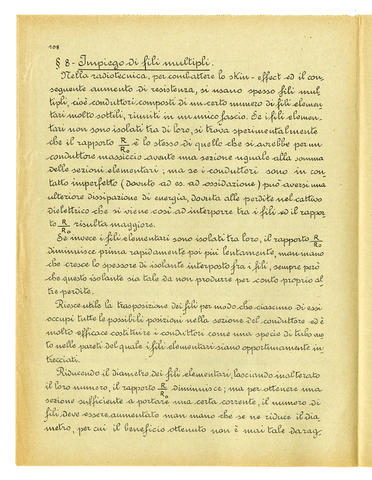 108
§ 8 - Impiego di fili multipli.
Nella radiotecnica, per combattere lo skin-effect ed il con,
seguente aumento di resistenza, si usano spesso fili mul,
tipli, cioè conduttori composti di un certo numero di fili elemen,
tari molto sottili, riuniti in un unico fascio. Se i fili elemen,
tari non sono isolati tra di loro, si trova sperimentalmente
che il rapporto R/R₀ è lo stesso di quello che si avrebbe per un
conduttore massiccio avente una sezione uguale alla somma
delle sezioni elementari; ma se i conduttori sono in con,
tatto imperfetto (dovuto ad es. ad ossidazione) può aversi una
ulteriore dissipazione di energia, dovuta alle perdite nel cattivo
dielettrico che si viene così ad interporre tra i fili ed il rappor,
to R/R₀ risulta maggiore.
Se invece i fili elementari sono isolati tra loro, il rapporto R/R₀
diminuisce prima rapidamente poi più lentamente, man mano
che cresce lo spessore di isolante interposto fra i fili, sempre però
che questo isolante sia tale da non produrre per conto proprio al,
tre perdite.
Riesce utile la trasposizione dei fili per modo che ciascuno di essi
occupi tutte le possibili posizioni nella sezione del conduttore ed è
molto efficace costituire i conduttori come una specie di tubo vuo,
to nelle pareti del quale i fili elementari siano opportunamente in,
trecciati.
Riducendo il diametro dei fili elementari, lasciando inalterato
il loro numero, il rapporto R/R₀ diminuisce; ma per ottenere una
sezione sufficiente a portare una certa corrente, il numero di
fili deve essere aumentato man mano che se ne riduce il dia,
metro, per cui il beneficio ottenuto non è mai tale da rag,